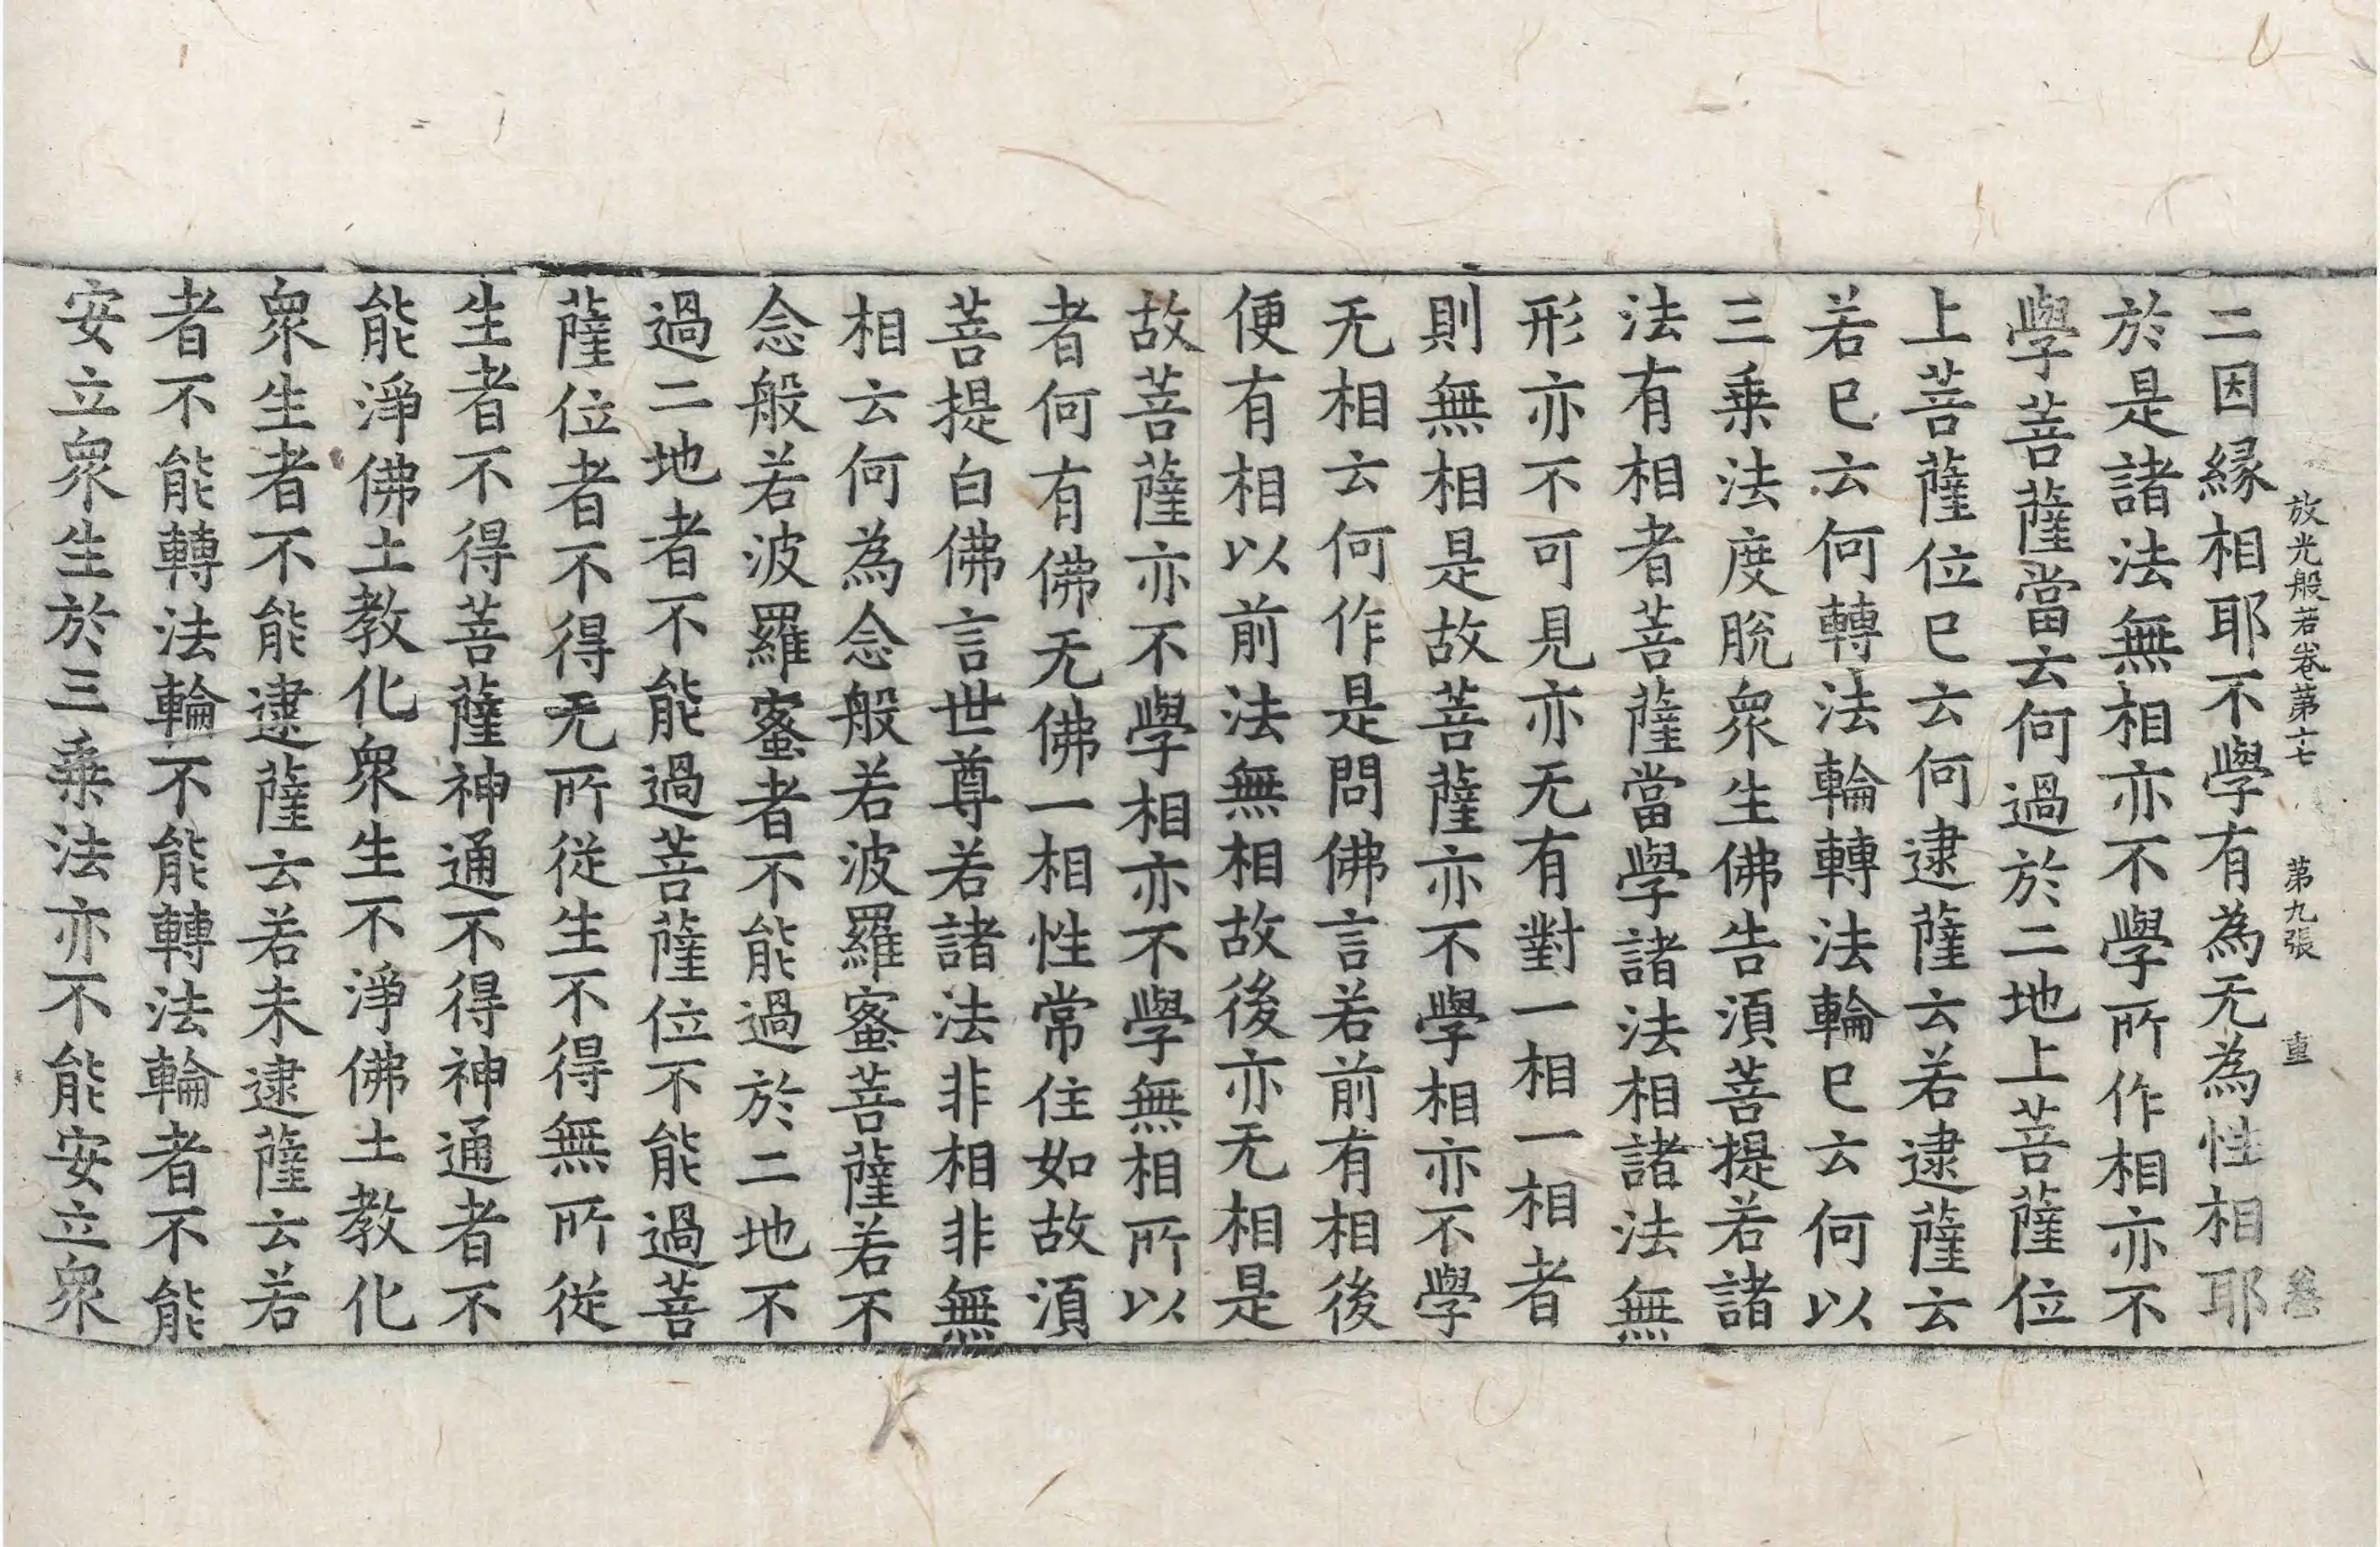 放光般若卷第十七 第九張 重
二因緣相耶不學有為无為性相耶
於是諸法無相亦不學所作相亦不
學菩薩當云何過於二地上菩薩位
上菩薩位已云何逮薩云若逮薩云
若已云何轉法輪轉法輪已云何以
三乗法度脫衆生佛告湏菩提若諸
法有相者菩薩當學諸法相諸法無
形亦不可見亦无有對一相一相者
則無相是故菩薩亦不學相亦不學
无相云何作是問佛言若前有相後
便有相以前法無相故後亦无相是
故菩薩亦不學相亦不學無相所以
者何有佛无佛一相性常住如故湏
菩提白佛言世尊若諸法非相非無
相云何為念般若波羅蜜菩薩若不
念般若波羅蜜者不能過於二地不
過二地者不能過菩薩位不能過菩
薩位者不得无所從生不得無所從
生者不得菩薩神通不得神通者不
能淨佛土教化衆生不淨佛土教化
衆生者不能逮薩云若未逮薩云若
者不能轉法輪不能轉法輪者不能
安立衆生於三乗法亦不能安立衆